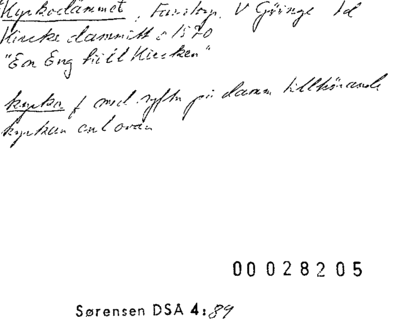 Kyrkodammet, Farstorp, V Göinge hd
Kircke dammitt c 1570
"Een Eng till Kircken"
kyrka f med syftn på damm tillhörande
kyrkan enl ovan
00 028205
Sørensen DSA 4:89